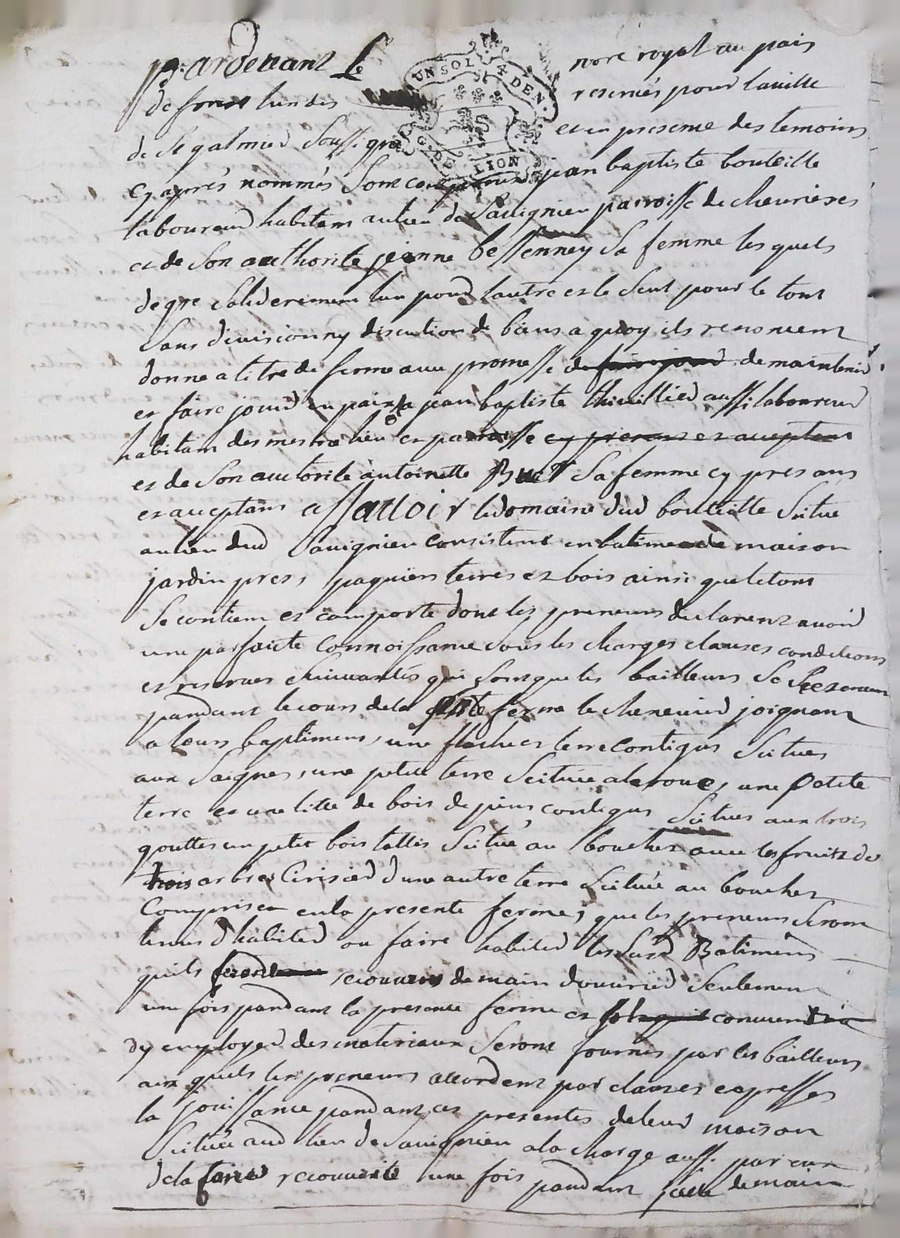 Pardevant Le nore royal au pais
UN SOL 4 DEN.
G. DE LION
de forest lun des reservés pour la ville
de St galmied Soussigné et en presence des temoins
cy aprés nommés Sont comparus jean baptiste bouteille
laboureur habitant au lieu de Sauignieu parroisse de cheurieres
et de Son authorité jeanne bessenney Sa femme les quels
de gre Soliderement lun pour lautre et le Seul pour le tout
Sans division ny discution de biens a quoy ils renoncent
donne a titre de ferme auec promesse de faire jouir de maintenir
et faire jouir en paix a jean baptiste thiuillied aussi laboureur
habitant des mesme lieu et parroisse cy present et acceptant
et de Son autorité antoinette Sa femme cy presans
et aceptans assauoir le domaine dud bouteille Scitue
au lieu dud Sauignieu consistent en batiment de maison
jardin pres, paquiers terres et bois ainsi que le tout
Se contient et comporte dont les preneurs declarent auoir
une parfaite connoissance sous les charges clauses conditions
et reserues Suiuantes qui Sont que les bailleurs Se reseruent
pandant le cours de la ferme le cheneuied joignant
a leurs baptimens, une et terre contigus Scitues
aux Saignes, une petite terre Scituée a la roue, une petite
terre et une litte de bois de pins contigus Scitues aux trois
gouttes un petit bois tallis Scitué au bouchet auec les fruits de
trois arbres Cirisied d'une autre terre Scituée au bouchet
Comprise en la presente ferme, que les preneurs Seront
tenus d'habited ou faire habited les Susd Batimens
quils feront recouurir de main douuried Seulement
un fois pandant la presente ferme et
dy employer des materiaux Seront fournis par les bailleurs
aux quels les preneurs accordent par clauses expresses
la jouissance pandant ces presentes de leur maison
Scituée aud lieu de Sauignieu a la charge aussi par eux
de la faire recouurir une fois pandant icelle de main